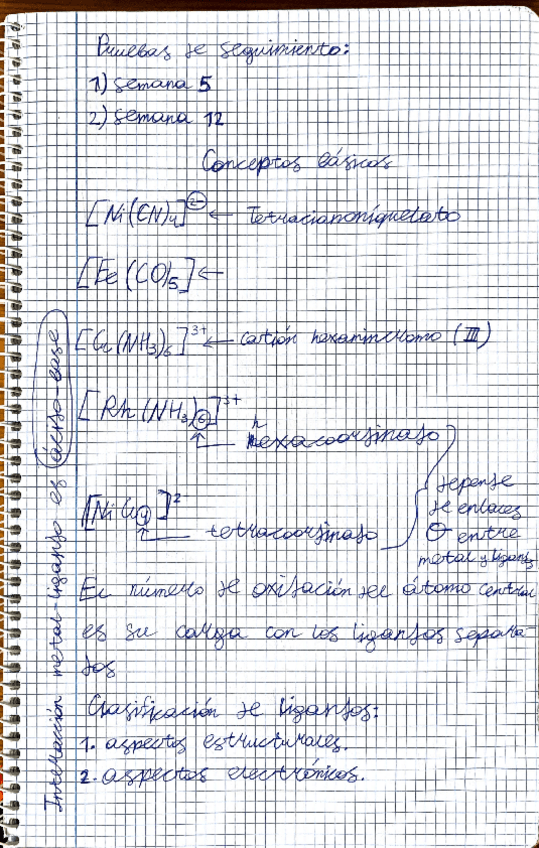 Pruebas de seguimiento:
1) semana 5
2) semana 12
Conceptos básicos
[Ni(CN)4]2- ← Tetracianoniquelato
[Fe(CO)5] ←
[Cr(NH3)6]3+ ← catión hexamincromo (III)
[Rh(NH3)6]3+
hexacoordinado
[NiCl4]2-
tetracoordinado
depende
de enlaces
σ entre
metal y ligando
El número de oxidación del átomo central
es su carga con los ligandos separa-
dos
Clasificación de ligandos:
1. aspectos estructurales.
2. aspectos electrónicos.
Interacción metal-ligando es ácido-base